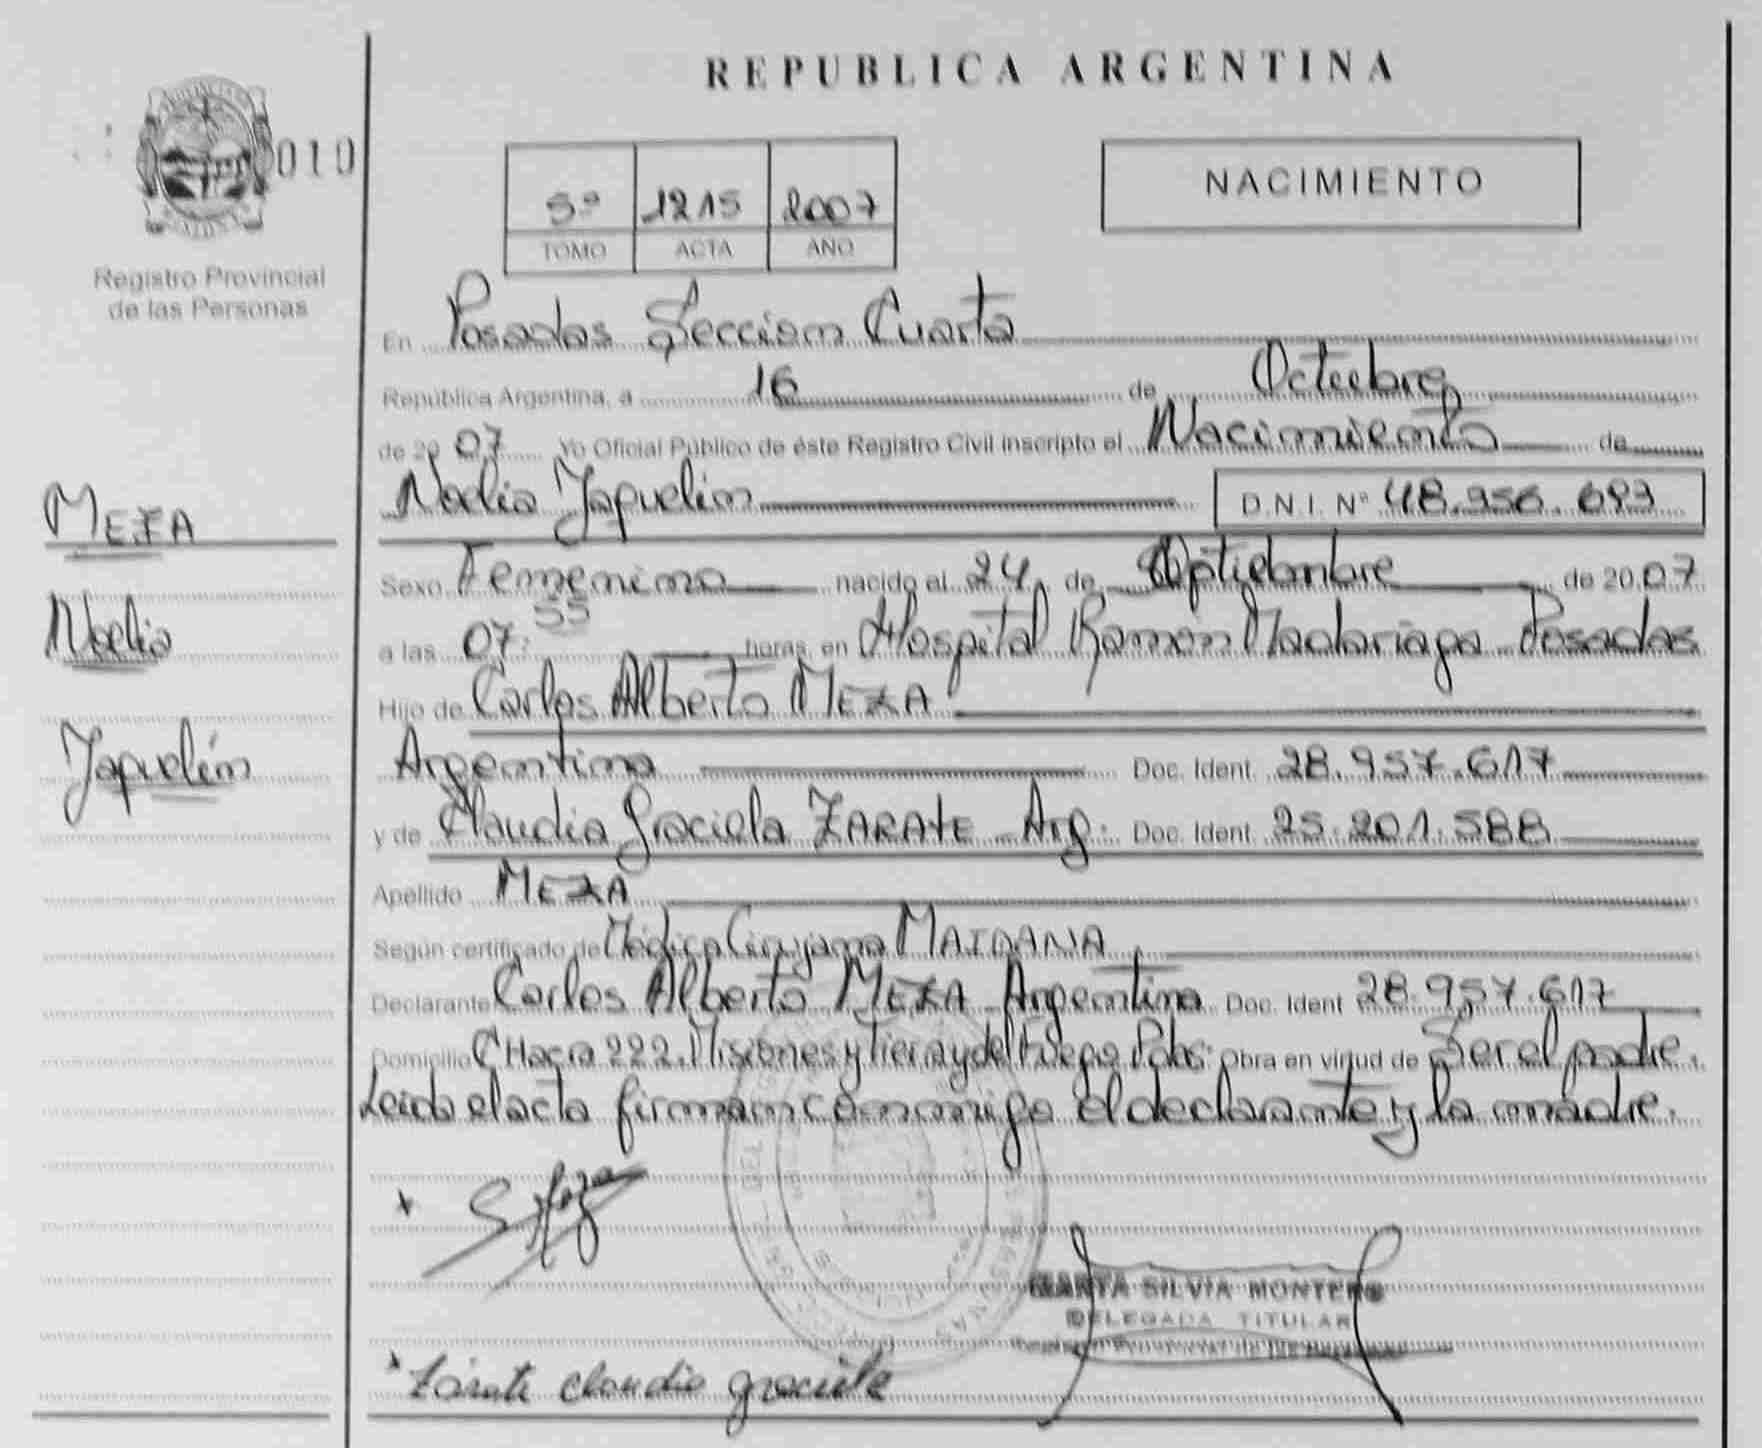 REPUBLICA ARGENTINA
010
NACIMIENTO
5º 1215 2007
TOMO ACTA AÑO
Registro Provincial
de las Personas
En Posadas Seccion Cuarta
República Argentina, a 16 de Octubre
de 2007 Yo Oficial Público de éste Registro Civil inscripto el Nacimiento de
Noelia Yaquelin D.N.I. Nº 48.956.693
MEZA
Noelia
Yaquelín
Sexo Femenino nacido el 24 de Septiembre de 2007
a las 07:55 horas, en Hospital Ramón Madariaga Posadas
Hijo de Carlos Alberto MEZA
Argentino Doc. Ident. 28.957.617
y de Claudia Graciela ZARATE Arg. Doc. Ident. 25.201.588
Apellido MEZA
Según certificado de Médica Cirujana MAIDANA
Declarante Carlos Alberto MEZA Argentino Doc. Ident 28.957.617
Domicilio CHacra 222. Misiones y Tierra del Fuego Pdas. Obra en virtud de Ser el padre.
Leida el acta firman conmigo el declarante y la madre.
MARTA SILVIA MONTERO
DELEGADA TITULAR
Registro Provincial de las Personas
Zárate claudia graciela